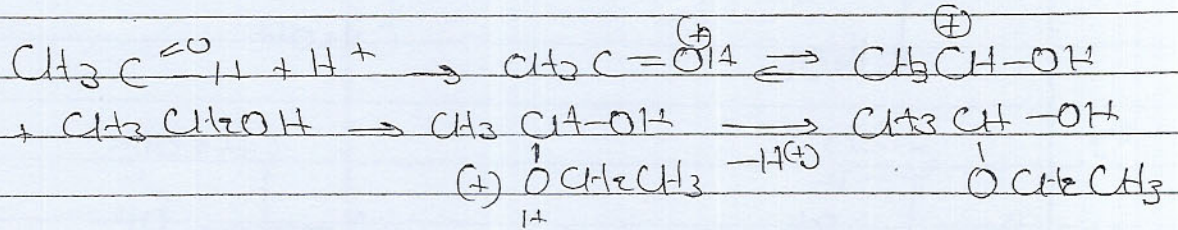 CH3C=O–H + H+ → CH3C=O(+)H ⇌ CH3CH(+)–OH
+ CH3CH2OH → CH3CH–OH —-H(+)→ CH3CH–OH
(+) OCH2CH3 OCH2CH3
H